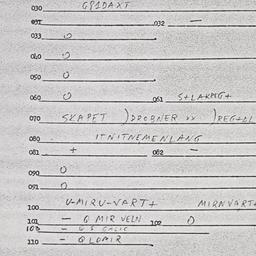 030 GP1DAXT
031 032 —
033 0
040 0
050 0
060 0 061 S+LAKNG+
070 SKAPET )DROBNER xx )REG+DL
080 ITNITNEMENLANG
081 + 082 —
090 0
091 0
100 U-MIRU-VART+ MIRNVART+
101 — Q MIR VELN 102 0
103 —
110 — QLOMIR